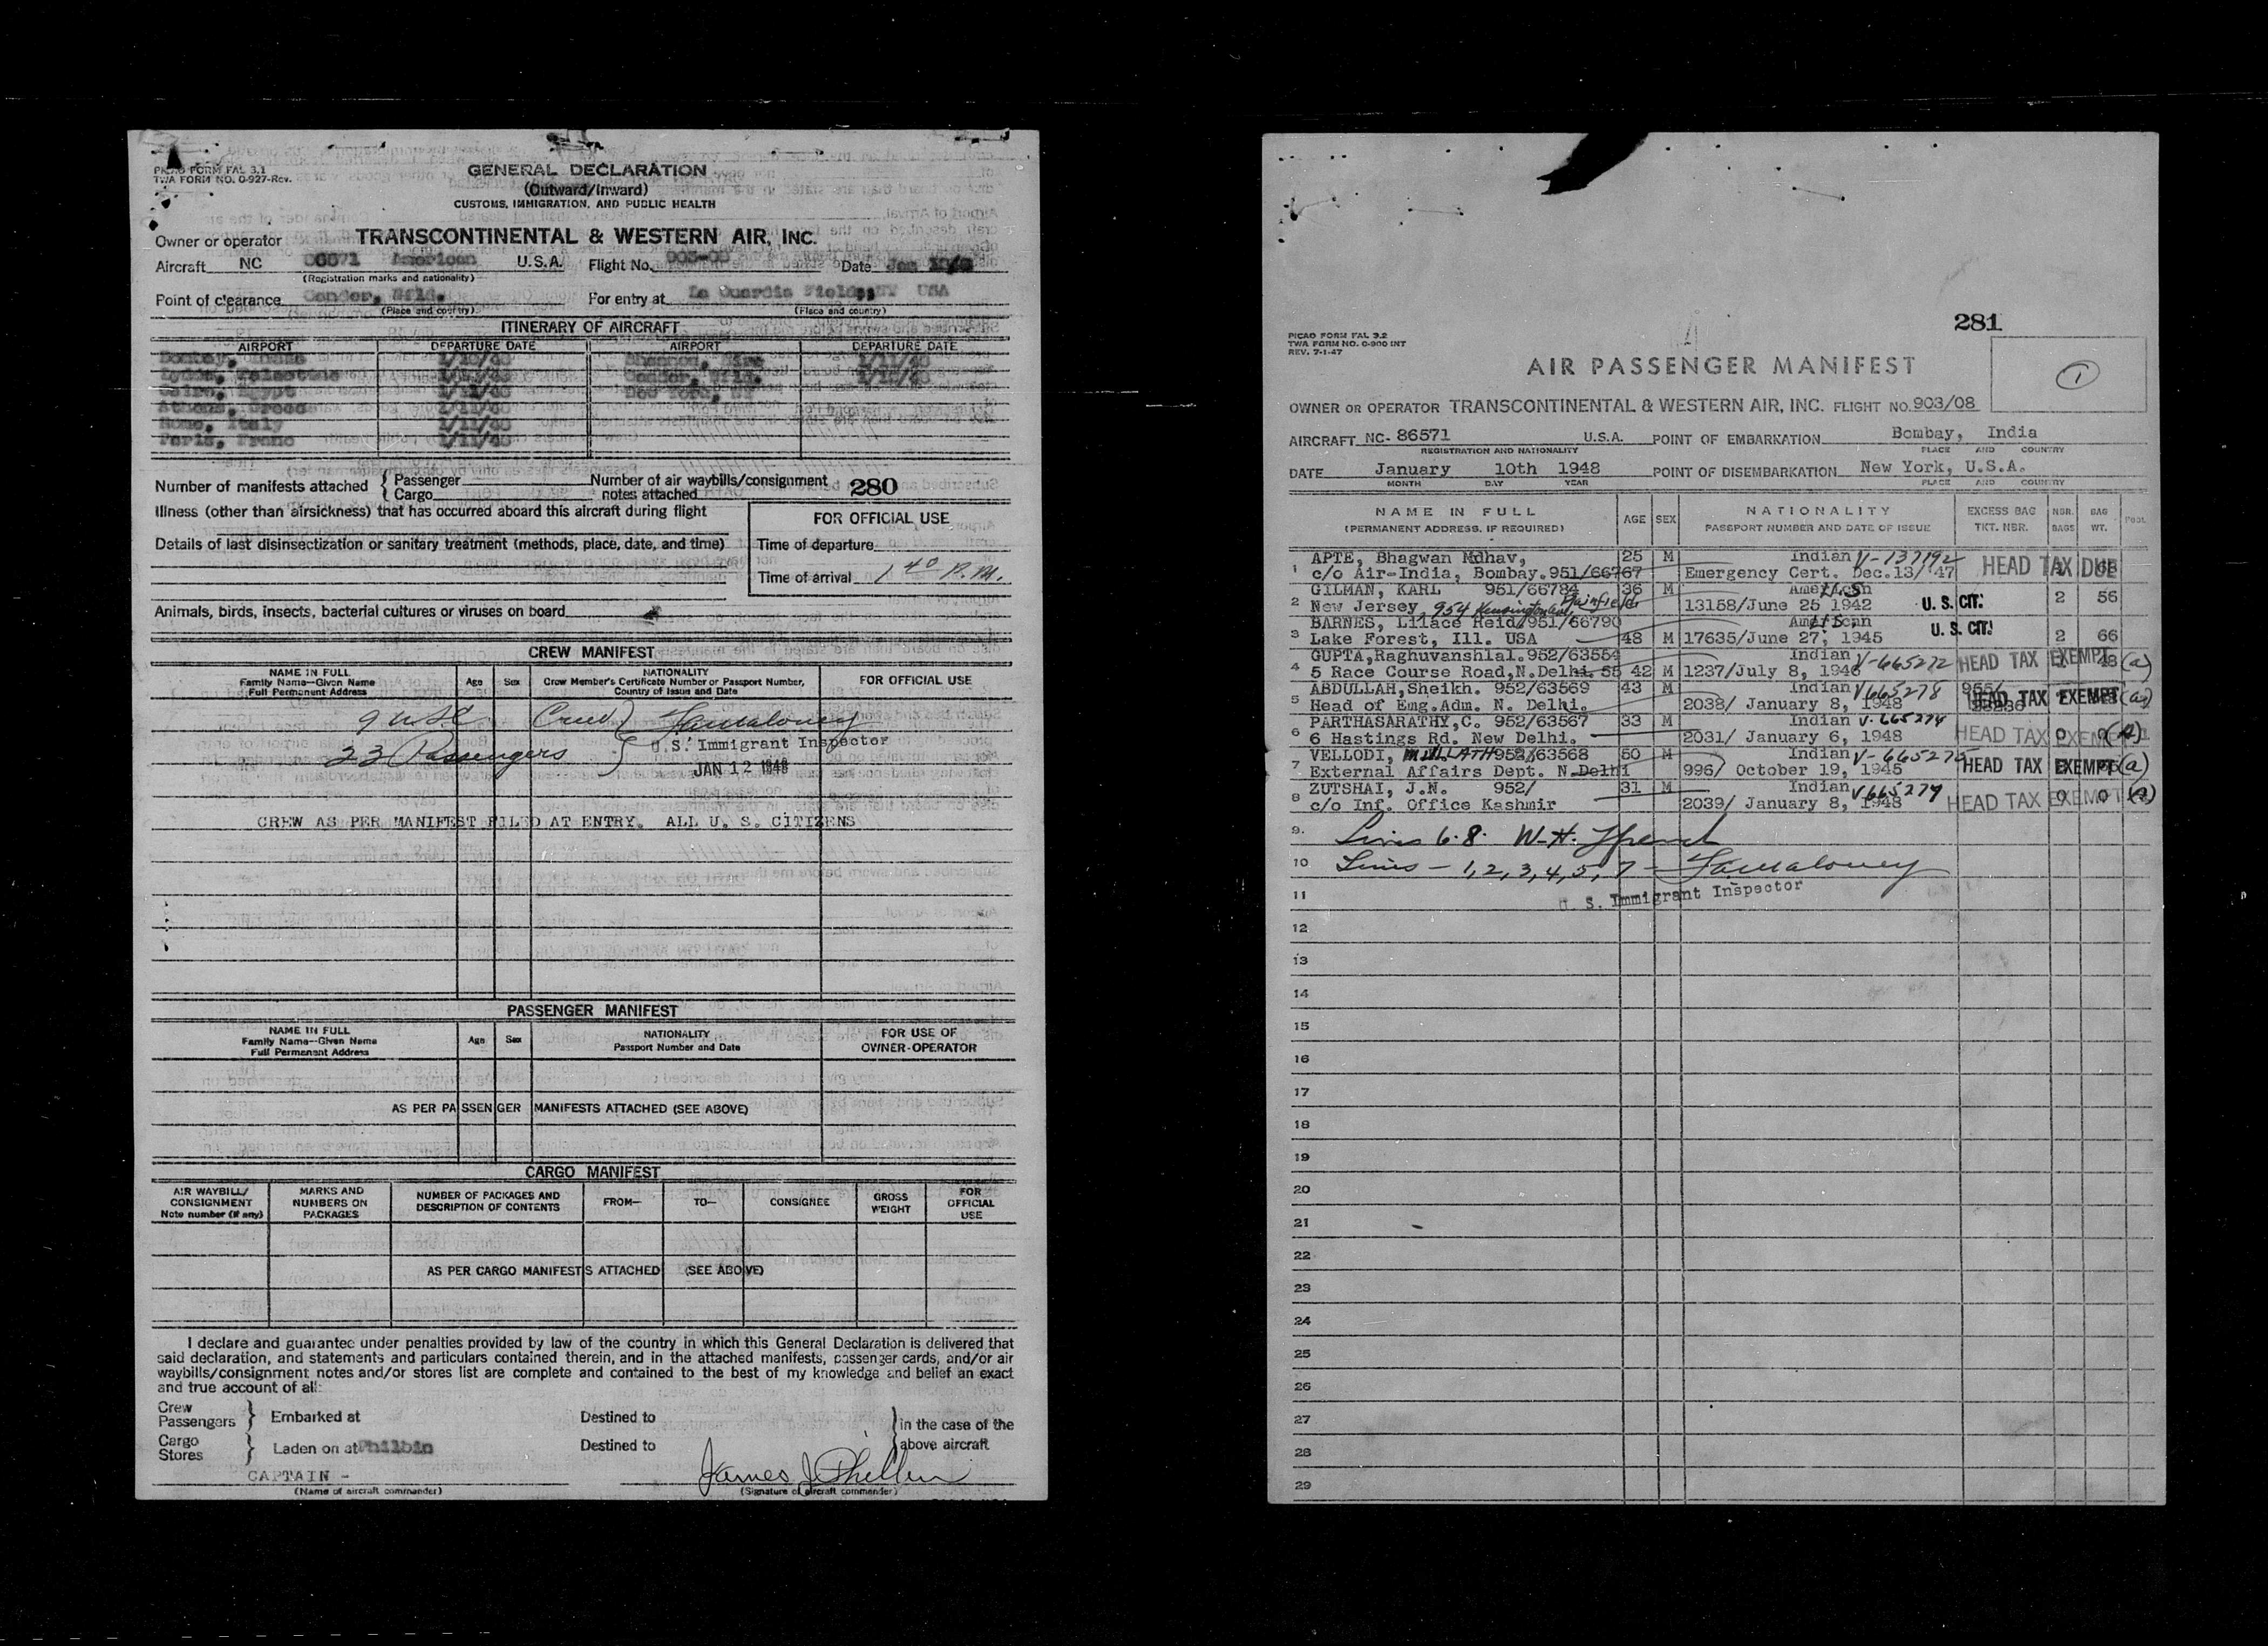 PICAO FORM FAL 3.1
TWA FORM NO. 0-927-Rev.
GENERAL DECLARATION
(Outward/Inward)
CUSTOMS, IMMIGRATION, AND PUBLIC HEALTH
Owner or operator TRANSCONTINENTAL & WESTERN AIR, INC.
Aircraft NC 86571 American U.S.A. Flight No. Date Jan
(Registration marks and nationality)
Point of clearance Gander, Nfld. For entry at La Guardia Field, NY USA
(Place and country) (Place and country)
ITINERARY OF AIRCRAFT
AIRPORT DEPARTURE DATE AIRPORT DEPARTURE DATE
Bombay, India 1/10/48 Shannon, Eire 1/11/48
Lydda, Palestine Gander, Nfld.
Cairo, Egypt 1/11/48 New York, NY
Athens, Greece 1/11/48
Rome, Italy 1/11/48
Paris, Franc 1/11/48
Number of manifests attached { Passenger Number of air waybills/consignment
Cargo notes attached 280
Illness (other than airsickness) that has occurred aboard this aircraft during flight
FOR OFFICIAL USE
Details of last disinsectization or sanitary treatment (methods, place, date, and time)
Time of departure
Time of arrival 1 40 P.M.
Animals, birds, insects, bacterial cultures or viruses on board
CREW MANIFEST
NAME IN FULL
Family Name—Given Name
Full Permanent Address
Age Sex
NATIONALITY
Crew Member's Certificate Number or Passport Number,
Country of Issue and Date
FOR OFFICIAL USE
9 USC (Crew)
23 Passengers U.S. Immigrant Inspector
JAN 12 1948
CREW AS PER MANIFEST FILED AT ENTRY. ALL U. S. CITIZENS
PASSENGER MANIFEST
NAME IN FULL
Family Name—Given Name
Full Permanent Address
Age Sex
NATIONALITY
Passport Number and Date
FOR USE OF
OWNER-OPERATOR
AS PER PASSENGER MANIFESTS ATTACHED (SEE ABOVE)
CARGO MANIFEST
AIR WAYBILL/
CONSIGNMENT
Note number (if any)
MARKS AND
NUMBERS ON
PACKAGES
NUMBER OF PACKAGES AND
DESCRIPTION OF CONTENTS
FROM— TO— CONSIGNEE
GROSS
WEIGHT
FOR
OFFICIAL
USE
AS PER CARGO MANIFESTS ATTACHED (SEE ABOVE)
I declare and guarantee under penalties provided by law of the country in which this General Declaration is delivered that
said declaration, and statements and particulars contained therein, and in the attached manifests, passenger cards, and/or air
waybills/consignment notes and/or stores list are complete and contained to the best of my knowledge and belief an exact
and true account of all:
Crew
Passengers } Embarked at Destined to } in the case of the
Cargo
Stores } Laden on at Philbin Destined to above aircraft
CAPTAIN -
(Name of aircraft commander) (Signature of aircraft commander)
281
PICAO FORM FAL 3.2
TWA FORM NO. 0-900 INT
REV. 7-1-47
AIR PASSENGER MANIFEST
1
OWNER OR OPERATOR TRANSCONTINENTAL & WESTERN AIR, INC. FLIGHT NO. 903/08
AIRCRAFT NC- 86571 U.S.A. POINT OF EMBARKATION Bombay, India
REGISTRATION AND NATIONALITY PLACE AND COUNTRY
DATE January 10th 1948 POINT OF DISEMBARKATION New York, U.S.A.
MONTH DAY YEAR PLACE AND COUNTRY
NAME IN FULL
(PERMANENT ADDRESS, IF REQUIRED)
AGE SEX
NATIONALITY
PASSPORT NUMBER AND DATE OF ISSUE
EXCESS BAG
TKT. NBR.
NBR.
BAGS
BAG
WT.
APTE, Bhagwan Mdhav, 25 M Indian V-137192 HEAD TAX DUE
1 c/o Air-India, Bombay. 951/66767 Emergency Cert. Dec.13/ '47
GILMAN, KARL 951/66784 36 M American
2 New Jersey, 954 Kensington Ave, Plainfield 13158/June 25 1942 U. S. CIT. 2 56
BARNES, Lilace Reid/951/66790 American U. S. CIT.
3 Lake Forest, Ill. USA 48 M 17635/June 27, 1945 2 66
GUPTA, Raghuvanshlal. 952/63554 Indian V-665272 HEAD TAX EXEMPT (a)
4 5 Race Course Road, N.Delhi. 42 M 1237/July 8, 1946
ABDULLAH, Sheikh. 952/63569 43 M Indian V665278 HEAD TAX EXEMPT (a)
5 Head of Emg.Adm. N. Delhi. 2038/ January 8, 1948
PARTHASARATHY, C. 952/63567 33 M Indian V-665274
6 6 Hastings Rd, New Delhi. 2031/ January 6, 1948 HEAD TAX EXEMPT (a)
VELLODI, 952/63568 50 M Indian V-665275 HEAD TAX EXEMPT (a)
7 External Affairs Dept. N.Delhi 996/ October 19, 1945
ZUTSHAI, J.N. 952/ 31 M Indian V665279
8 c/o Inf. Office Kashmir 2039/ January 8, 1948 HEAD TAX EXEMPT 0 0 (a)
9. Lines 6-8. W. H.
10 Lines - 1,2,3,4,5,7 -
11 U. S. Immigrant Inspector
12
13
14
15
16
17
18
19
20
21
22
23
24
25
26
27
28
29